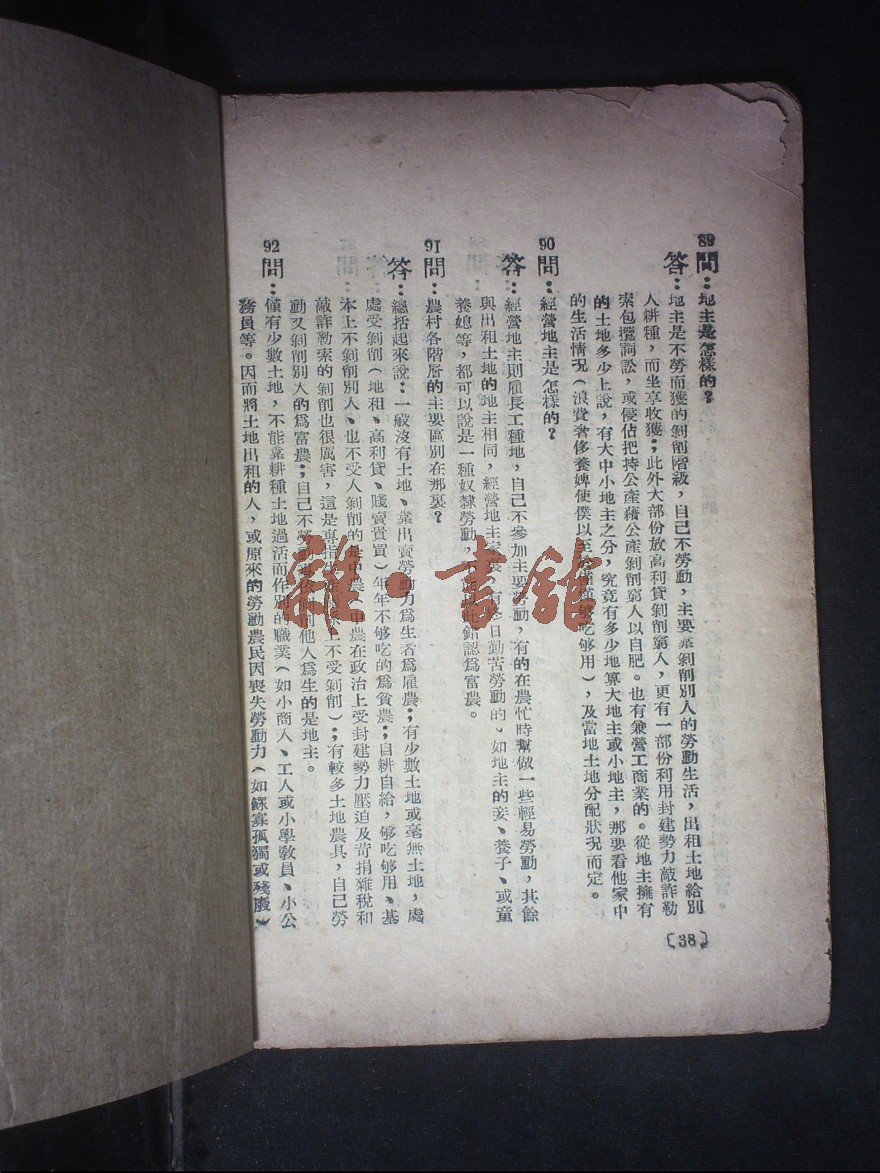 89問：地主是怎樣的？
答：地主是不勞而獲的剝削階級，自己不勞動，主要靠剝削別人的勞動生活，出租土地給別
人耕種，而坐享收獲；此外大部份放高利貸剝削窮人，更有一部份利用封建勢力敲詐勒
索包攬詞訟，或侵佔把持公產藉公產剝削窮人以自肥。也有兼營工商業的。從地主擁有
的土地多少上說，有大中小地主之分，究竟有多少地算大地主或小地主，那要看他家中
的生活情況（浪費奢侈養婢使僕以至於僅僅够吃够用），及當地土地分配狀況而定。
90問：經營地主是怎樣的？
答：經營地主則雇長工種地，自己不參加主要勞動，有的在農忙時幫做一些輕易勞動，其餘
與出租土地的地主相同，經營地主家裏，有終日勤苦勞動的，如地主的妾、養子、或童
養媳等，都可以說是一種奴隸勞動，不能因此錯認爲富農。
91問：農村各階層的主要區別在那裏？
答：總括起來說：一般沒有土地、靠出賣勞動力爲生者爲雇農；有少數土地或毫無土地，處
處受剝削（地租、高利貸、賤賣貴買）年年不够吃的爲貧農；自耕自給，够吃够用、基
本上不剝削別人、也不受人剝削的是中農（中農在政治上受封建勢力壓迫及苛捐雜稅和
敲詐勒索的剝削也很厲害，這是專指 上不受剝削）；有較多土地農具，自己勞
動又剝削別人的爲富農；自己不勞動 剝削他人爲生的是地主。
92問：僅有少數土地，不能靠耕種土地過活而作別的職業（如小商人、工人或小學敎員、小公
務員等。因而將土地出租的人，或原來的勞動農民因喪失勞動力（如鰥寡孤獨或殘廢）
〔38〕
雜·書館